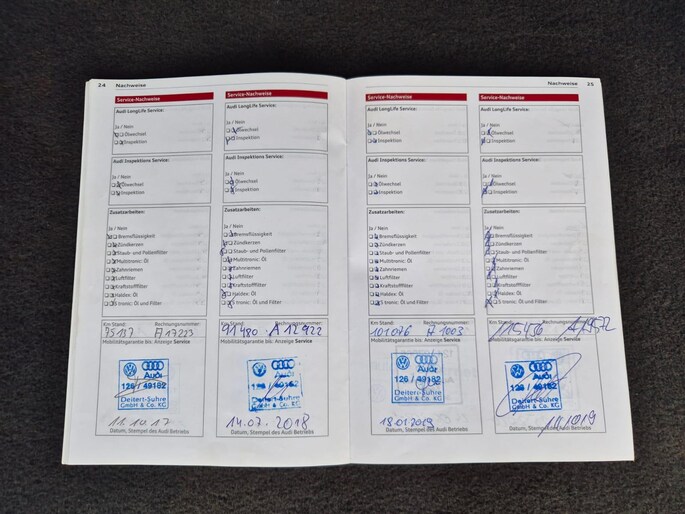 24 Nachweise
Service-Nachweise
Audi LongLife Service:
Ja / Nein
Ölwechsel
Inspektion
Audi Inspektions Service:
Ja / Nein
Ölwechsel
Inspektion
Zusatzarbeiten:
Ja / Nein
Bremsflüssigkeit
Zündkerzen
Staub- und Pollenfilter
Multitronic: Öl
Zahnriemen
Luftfilter
Kraftstofffilter
Haldex: Öl
S tronic: Öl und Filter
Km Stand: Rechnungsnummer:
75137 A17223
Mobilitätsgarantie bis: Anzeige Service
Audi
126 / 49162
Deitert-Suhre
GmbH & Co. KG
11.10.17
Datum, Stempel des Audi Betriebs
Service-Nachweise
Audi LongLife Service:
Ja / Nein
Ölwechsel
Inspektion
Audi Inspektions Service:
Ja / Nein
Ölwechsel
Inspektion
Zusatzarbeiten:
Ja / Nein
Bremsflüssigkeit
Zündkerzen
Staub- und Pollenfilter
Multitronic: Öl
Zahnriemen
Luftfilter
Kraftstofffilter
Haldex: Öl
S tronic: Öl und Filter
Km Stand: Rechnungsnummer:
91480 A12922
Mobilitätsgarantie bis: Anzeige Service
Audi
126 / 49162
Deitert-Suhre
GmbH & Co. KG
14.07.2018
Datum, Stempel des Audi Betriebs
Nachweise 25
Service-Nachweise
Audi LongLife Service:
Ja / Nein
Ölwechsel
Inspektion
Audi Inspektions Service:
Ja / Nein
Ölwechsel
Inspektion
Zusatzarbeiten:
Ja / Nein
Bremsflüssigkeit
Zündkerzen
Staub- und Pollenfilter
Multitronic: Öl
Zahnriemen
Luftfilter
Kraftstofffilter
Haldex: Öl
S tronic: Öl und Filter
Km Stand: Rechnungsnummer:
101076 A1003
Mobilitätsgarantie bis: Anzeige Service
Audi
126 / 49162
Deitert-Suhre
GmbH & Co. KG
18.01.2019
Datum, Stempel des Audi Betriebs
Service-Nachweise
Audi LongLife Service:
Ja / Nein
Ölwechsel
Inspektion
Audi Inspektions Service:
Ja / Nein
Ölwechsel
Inspektion
Zusatzarbeiten:
Ja / Nein
Bremsflüssigkeit
Zündkerzen
Staub- und Pollenfilter
Multitronic: Öl
Zahnriemen
Luftfilter
Kraftstofffilter
Haldex: Öl
S tronic: Öl und Filter
Km Stand: Rechnungsnummer:
Mobilitätsgarantie bis: Anzeige Service
Audi
126 / 49162
Deitert-Suhre
GmbH & Co. KG
Datum, Stempel des Audi Betriebs